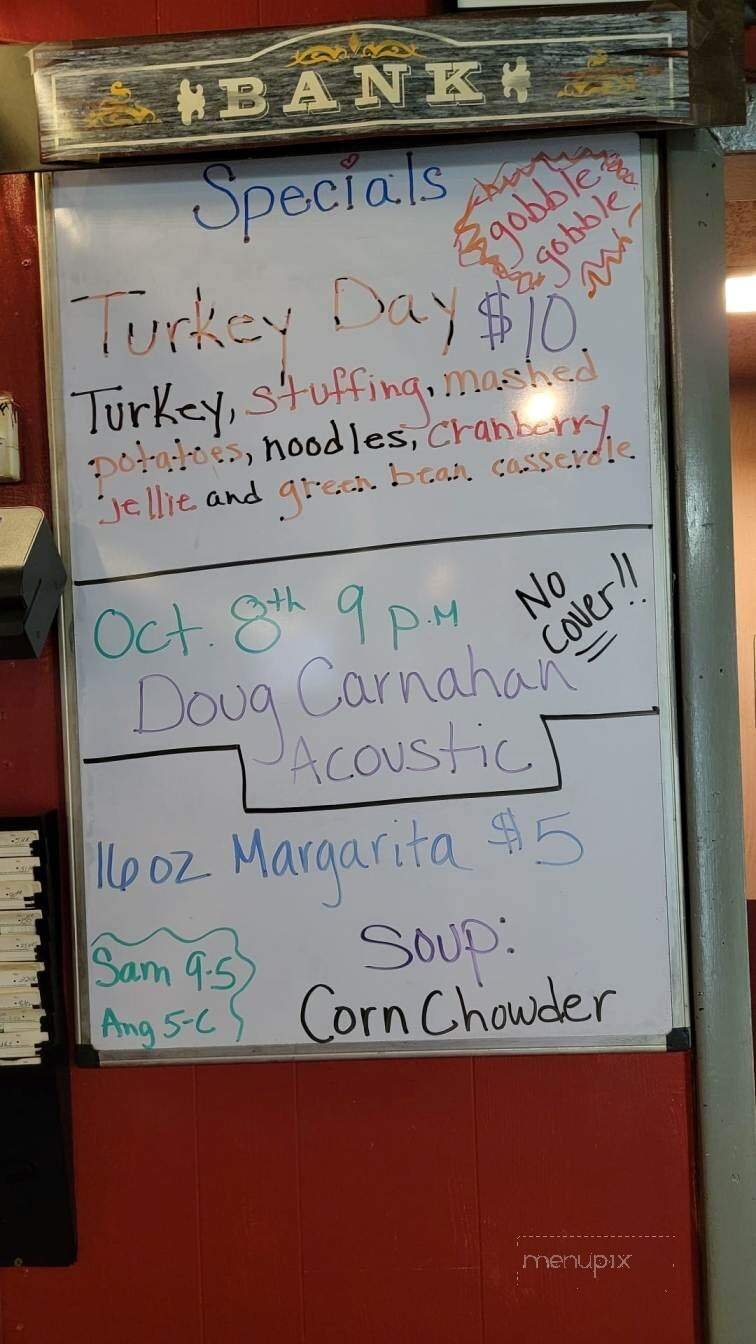 BANK
Specials
gobble
gobble
Turkey Day $10
Turkey, stuffing, mashed
potatoes, noodles, cranberry
jellie and green bean casserole
Oct. 8th 9 p.m
No
Cover!!
Doug Carnahan
Acoustic
16 oz Margarita $5
Sam 9-5
Ang 5-C
Soup:
Corn Chowder
menupix